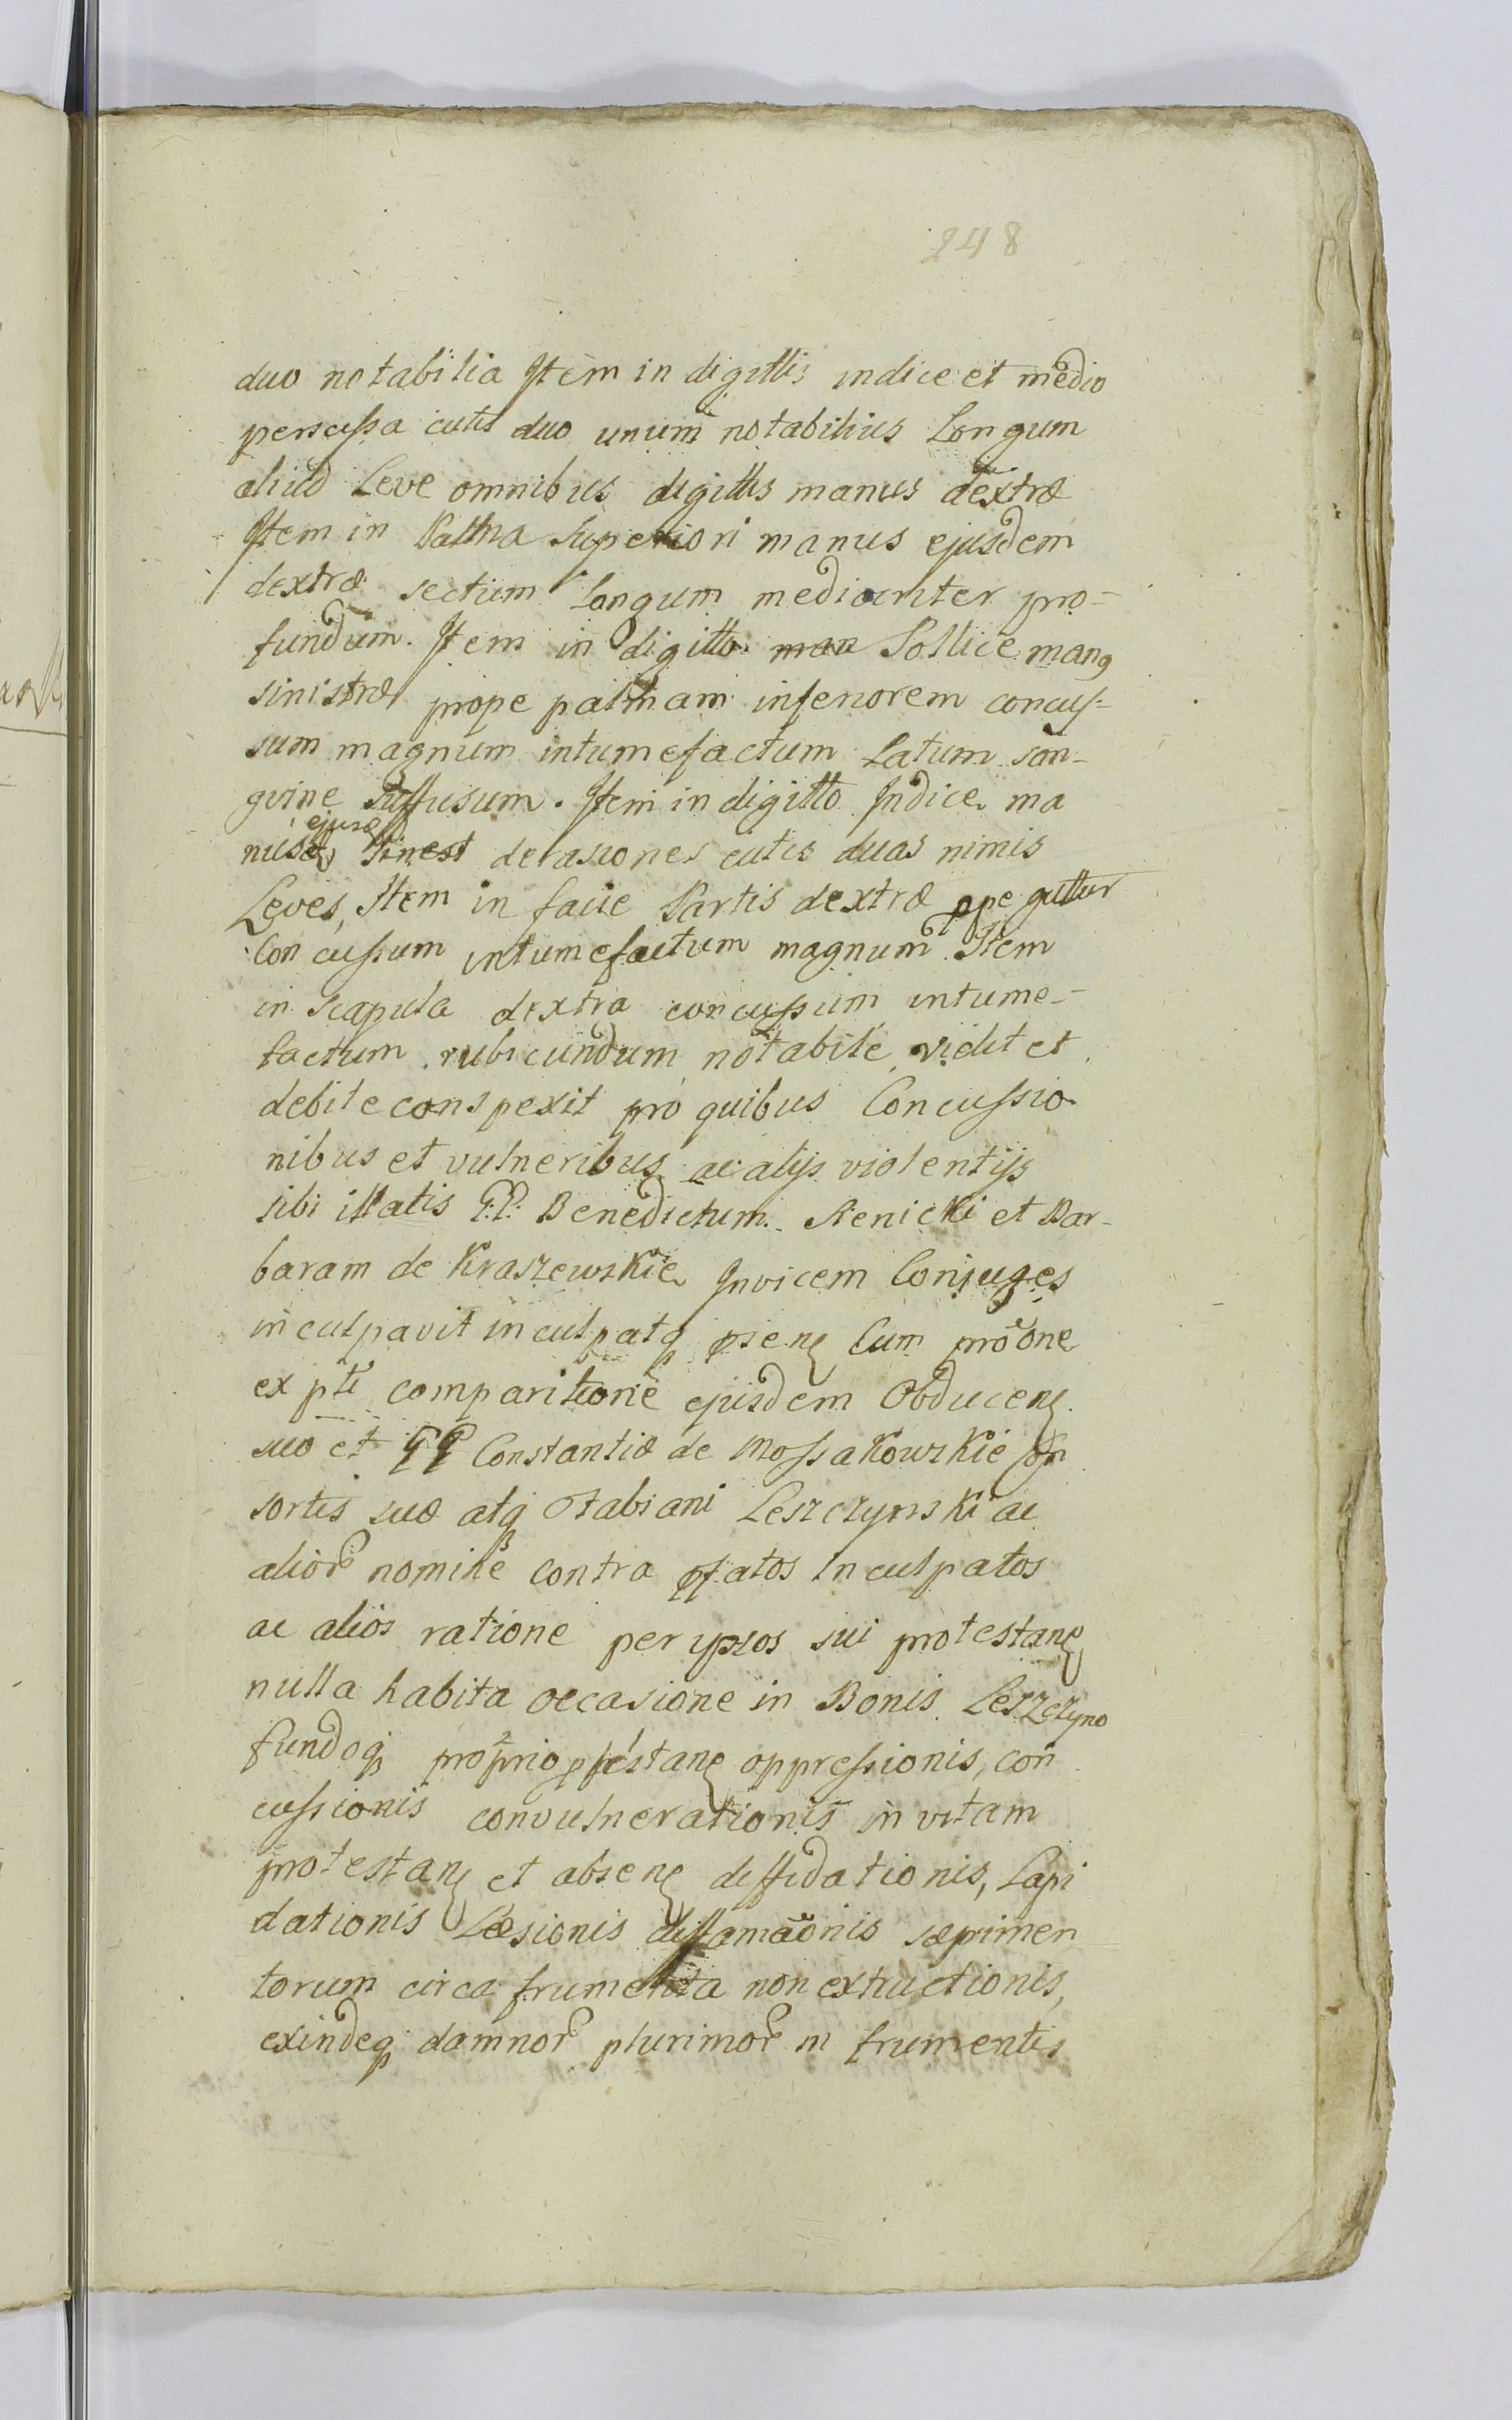 248
duo notabilia Item in digittis indice et medio
percussa cutis duo unum notabilius Longum
aliud Leve omnibus digittis manus dextræ
Item in Palma Superiori manus ejusdem
dextræ sectum Longum mediocriter pro-
fundum. Item in digitto man Pollice manꝰ
sinistræ prope palmam inferiorem concus-
sum magnum intumefactum Latum san-
gvine suffusum. Item in digitto Indice ma
ejusd
nus sinest derasiones cutis duas nimis
Leves, Item in facie Partis dextræ ppe guttur
Concussum intumefactum magnum Item
in scapula dextra concussum intume-
factum rubicundum notabile vidit et
debite conspexit pro quibus Concussio
nibus et vulneribus ac alijs violentijs
sibi illatis GG. Benedictum Kienicki et Bar-
baram de Kraszewskie Invicem Conjuges
inculpavit inculpatq psen Cum proone
ex pte comparitione ejusdem Obducen
suo et GG Constantiæ de Mossakowskie Con
sortis suæ atq Fabiani Leszczynski ac
alior nomine contra pfatos Inculpatos
ac alios ratione per ipsos sui protestan
nulla habita occasione in Bonis Leszczyno
fundoq proprio ptestan oppressionis, con
cussionis convulnerationis in vitam
protestan et absen diffidationis, Lapi
dationis Læsionis diffamaonis sæpimen
torum circa frumenta non extructionis,
exindeq damnor plurimor in frumentis